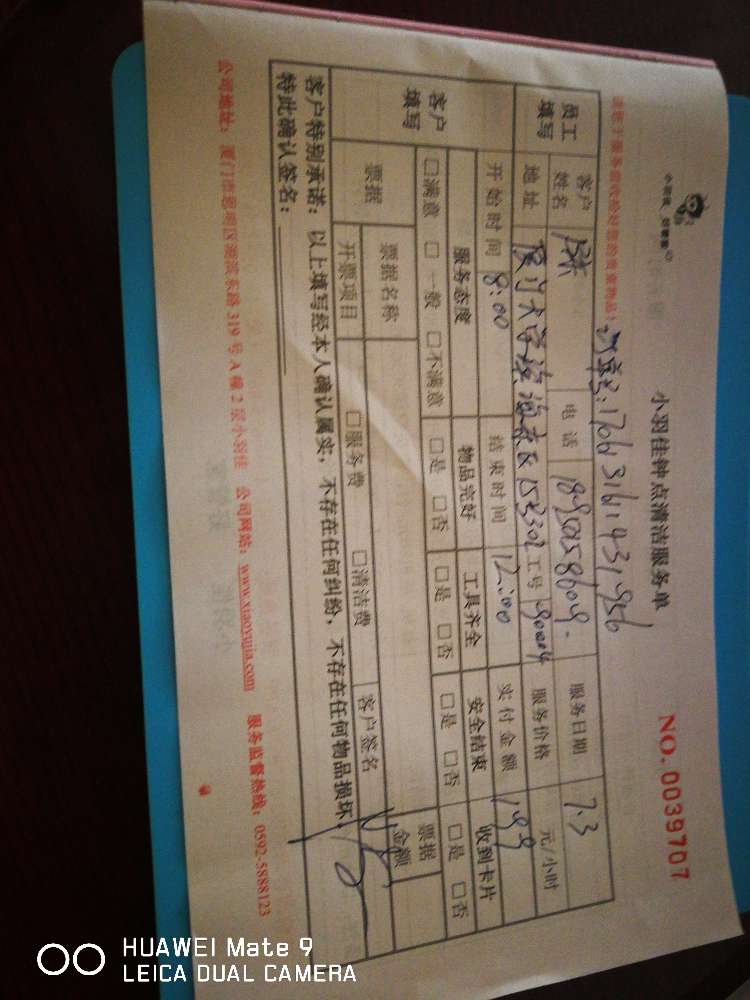 小羽佳钟点清洁服务单
NO.0039707
小羽佳 好管家
请您于服务前收检好您的贵重物品！
员工填写 客户姓名 电话 服务日期 7.3
地址 厦门大学滨海东区 工号 90004 服务价格 元/小时
开始时间 8:00 结束时间 12:00 实付金额 199
客户填写 服务态度 物品完好 工具齐全 安全结束 收到卡片
□满意 □一般 □不满意 □是 □否 □是 □否 □是 □否 □是 □否
票据 票据名称 票据金额
开票项目 □服务费 □清洁费 客户签名
客户特别承诺：以上填写经本人确认属实，不存在任何纠纷，不存在任何物品损坏，
特此确认签名：
公司地址：厦门市思明区湖滨东路319号A幢2层小羽佳 公司网站：www.xiaoyujia.com 服务监督热线：0592-5888123
HUAWEI Mate 9
LEICA DUAL CAMERA